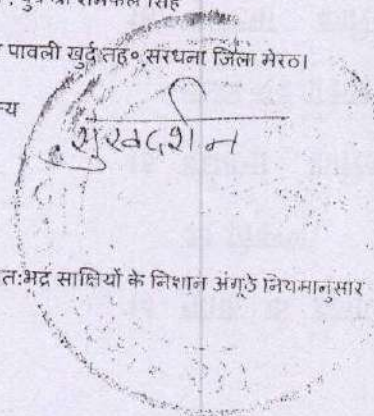 पुत्र श्री रामफल सिंह
पावली खुर्द तह०,सरधना जिला मेरठ।
न्य
सुखदर्शन
त:भद्र साक्षियों के निशान अंगूठे नियमानुसार